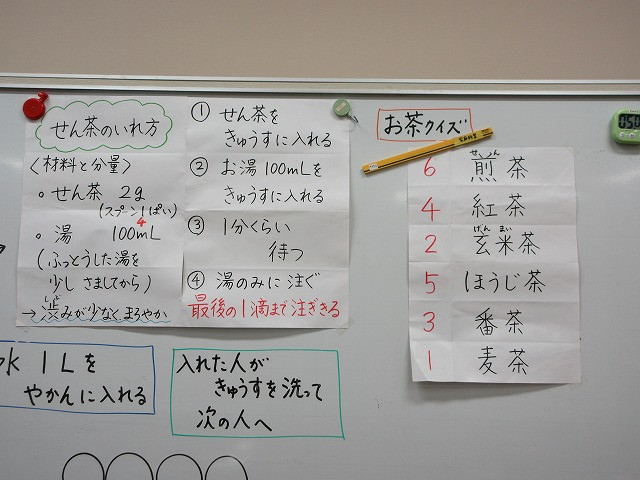 せん茶のいれ方
〈材料と分量〉
・せん茶 2g
(スプーン1ぱい)
4
・湯 100mL
(ふっとうした湯を
少しさましてから)
しぶ
→渋みが少なくまろやか
① せん茶を
きゅうすに入れる
② お湯100mLを
きゅうすに入れる
③ 1分くらい
待つ
④ 湯のみに注ぐ
最後の1滴まで注ぎきる
お茶クイズ
6 煎茶
4 紅茶
げんまい
2 玄米茶
5 ほうじ茶
3 番茶
1 麦茶
1Lを
やかんに入れる
入れた人が
きゅうすを洗って
次の人へ